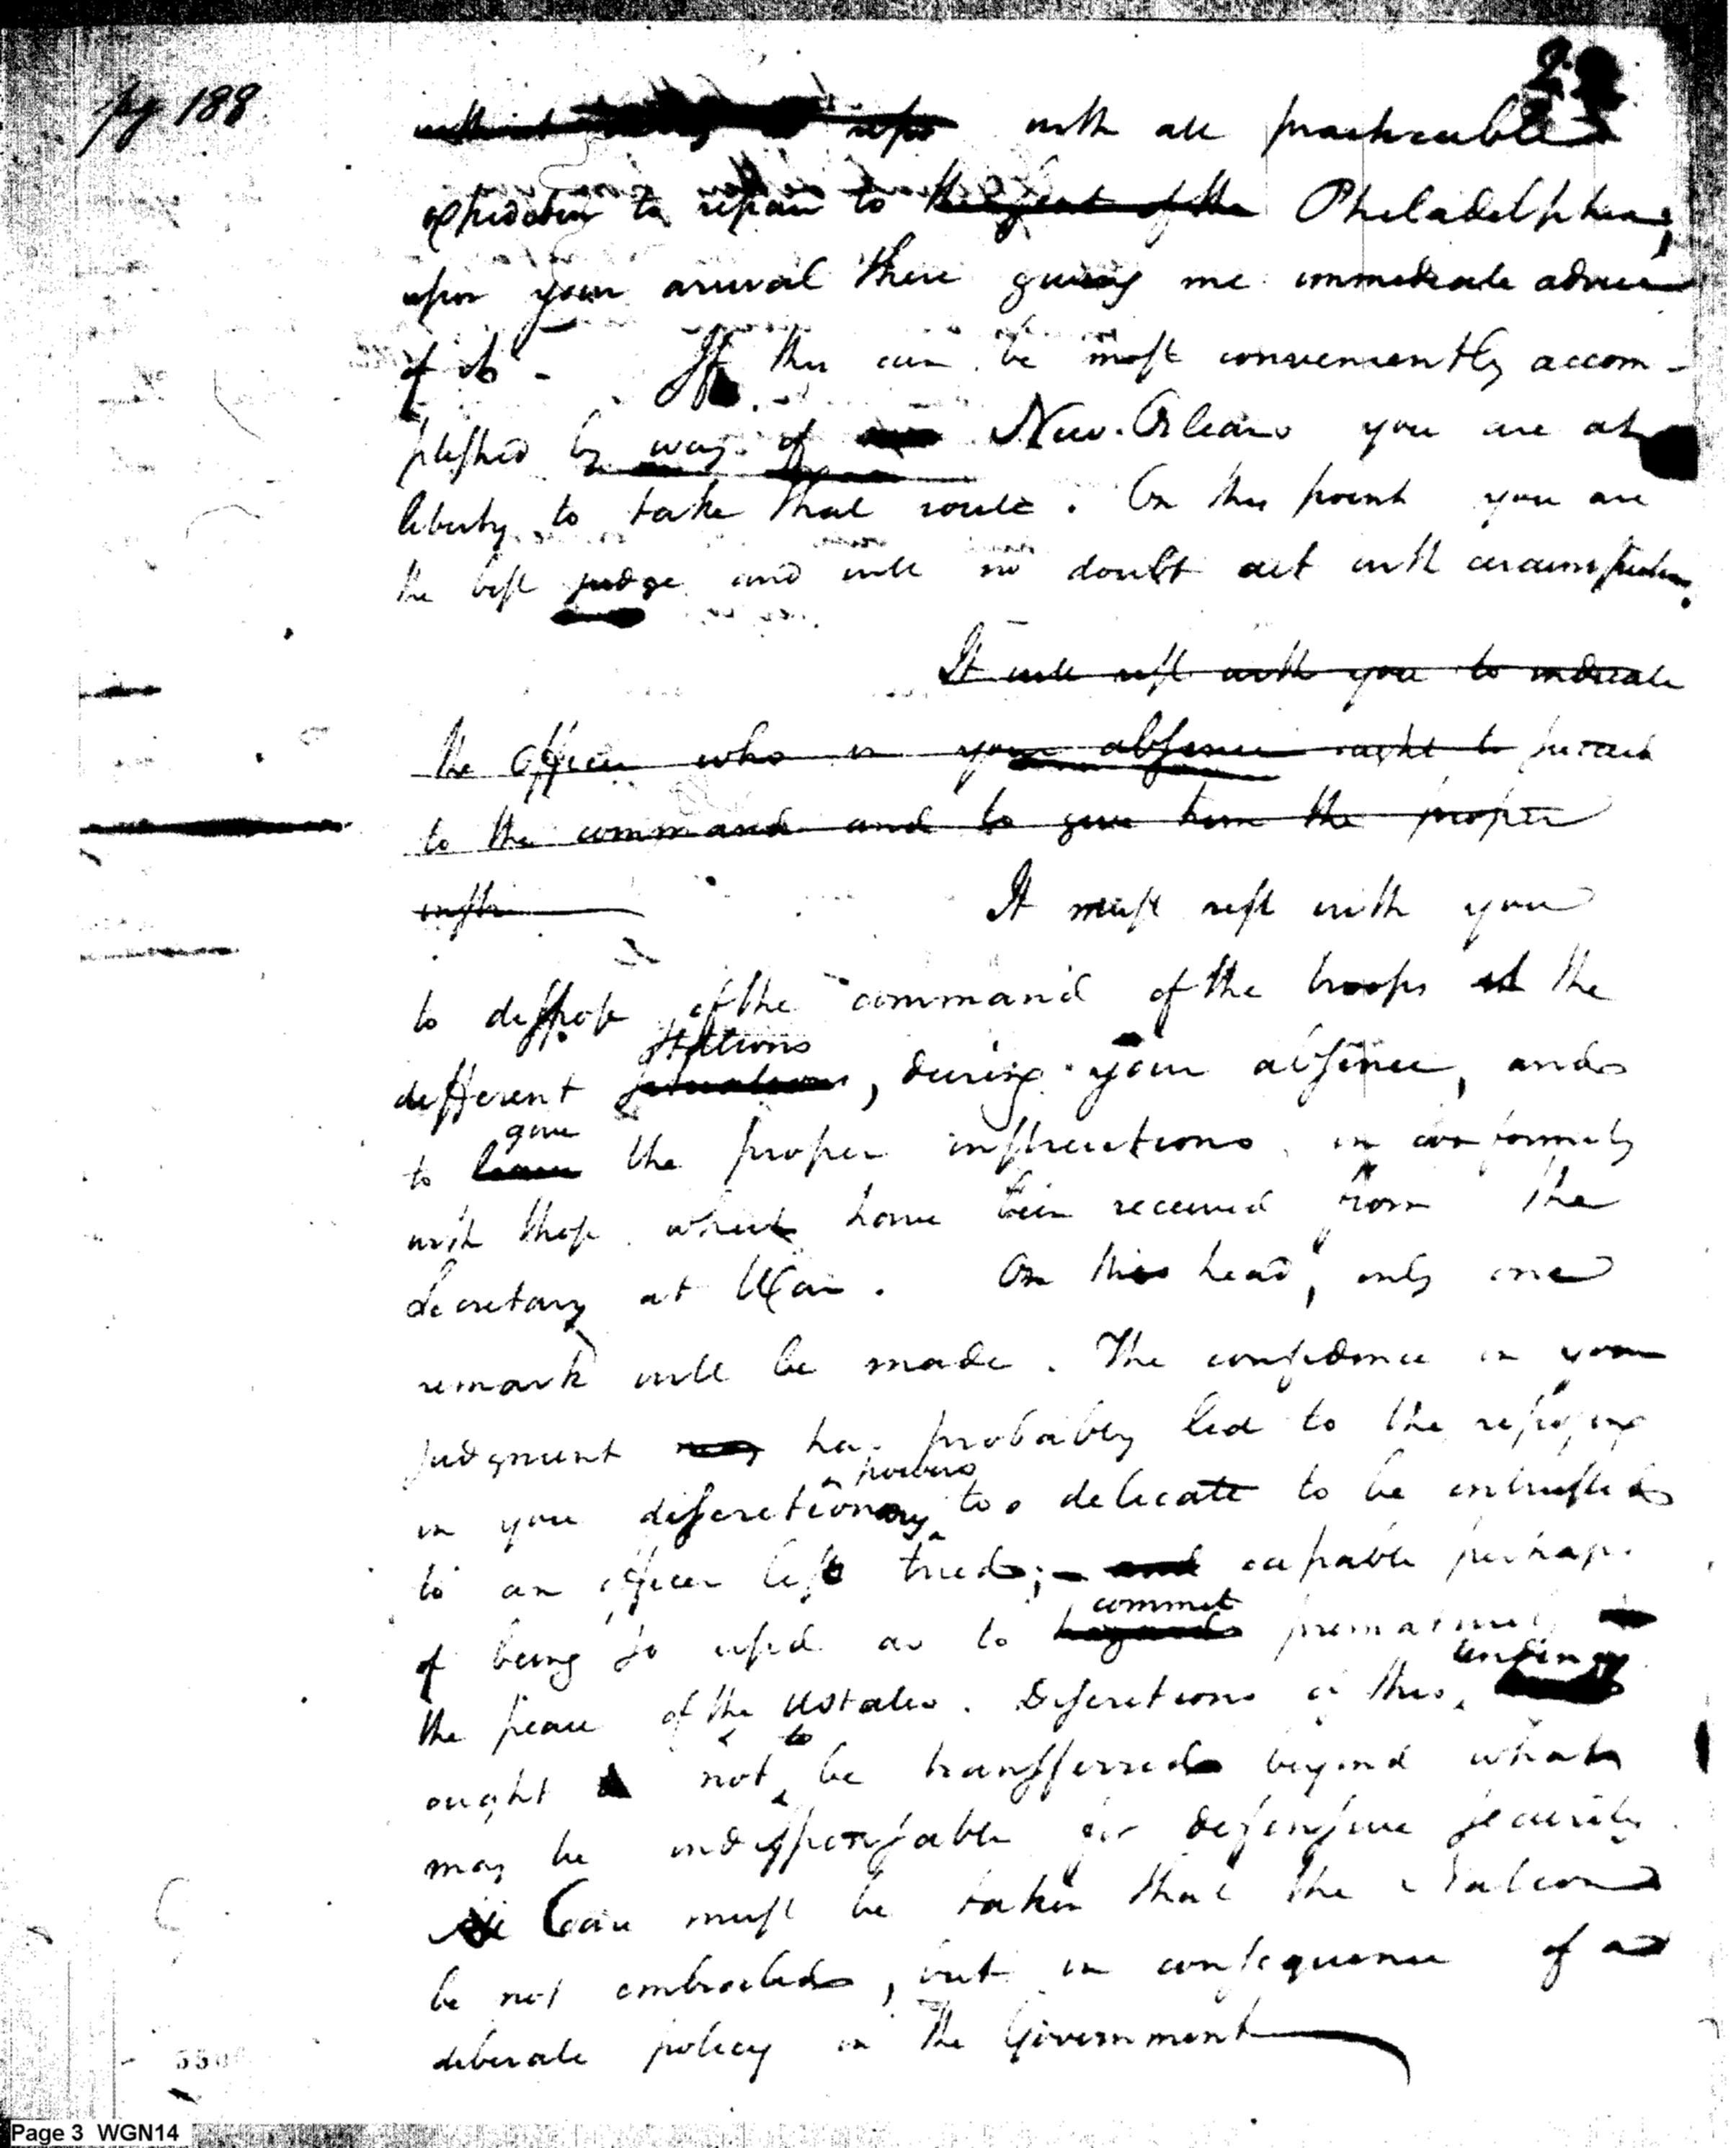 pg 188
23
with all practicable
expedition to repair to the seat of the Philadelphia;
upon your arrival there giving me immediate advice
of it - If this can be most conveniently accom-
plished by way of New-Orleans you are at
liberty to take that route. On this point you are
the best judge and will no doubt act with circumspection.
It will rest with you to indicate
the Officer who in your absence ought to succeed
to the command and to give him the proper
instr
It must rest with you
to dispose of the command of the troops at the
stations
different situations, during your absence, and
give
to leave the proper instructions, in conformity
with those which have been received from the
Secretary at War. On this head, only one
remark will be made. The confidence in your
judgment may has probably led to the reposing
powers
in you discretionary too delicate to be intrusted
to an officer less tried; - and capable perhaps
commit
of being so used as to hazard prematurely
tendency
the peace of the UStates. Discretions of this
to
ought not be transferred beyond what
may be indispensable for defensive security.
Care must be taken that the Nation
be not embroiled, but in consequence of a
deliberate policy in the Government
550
Page 3 WGN14